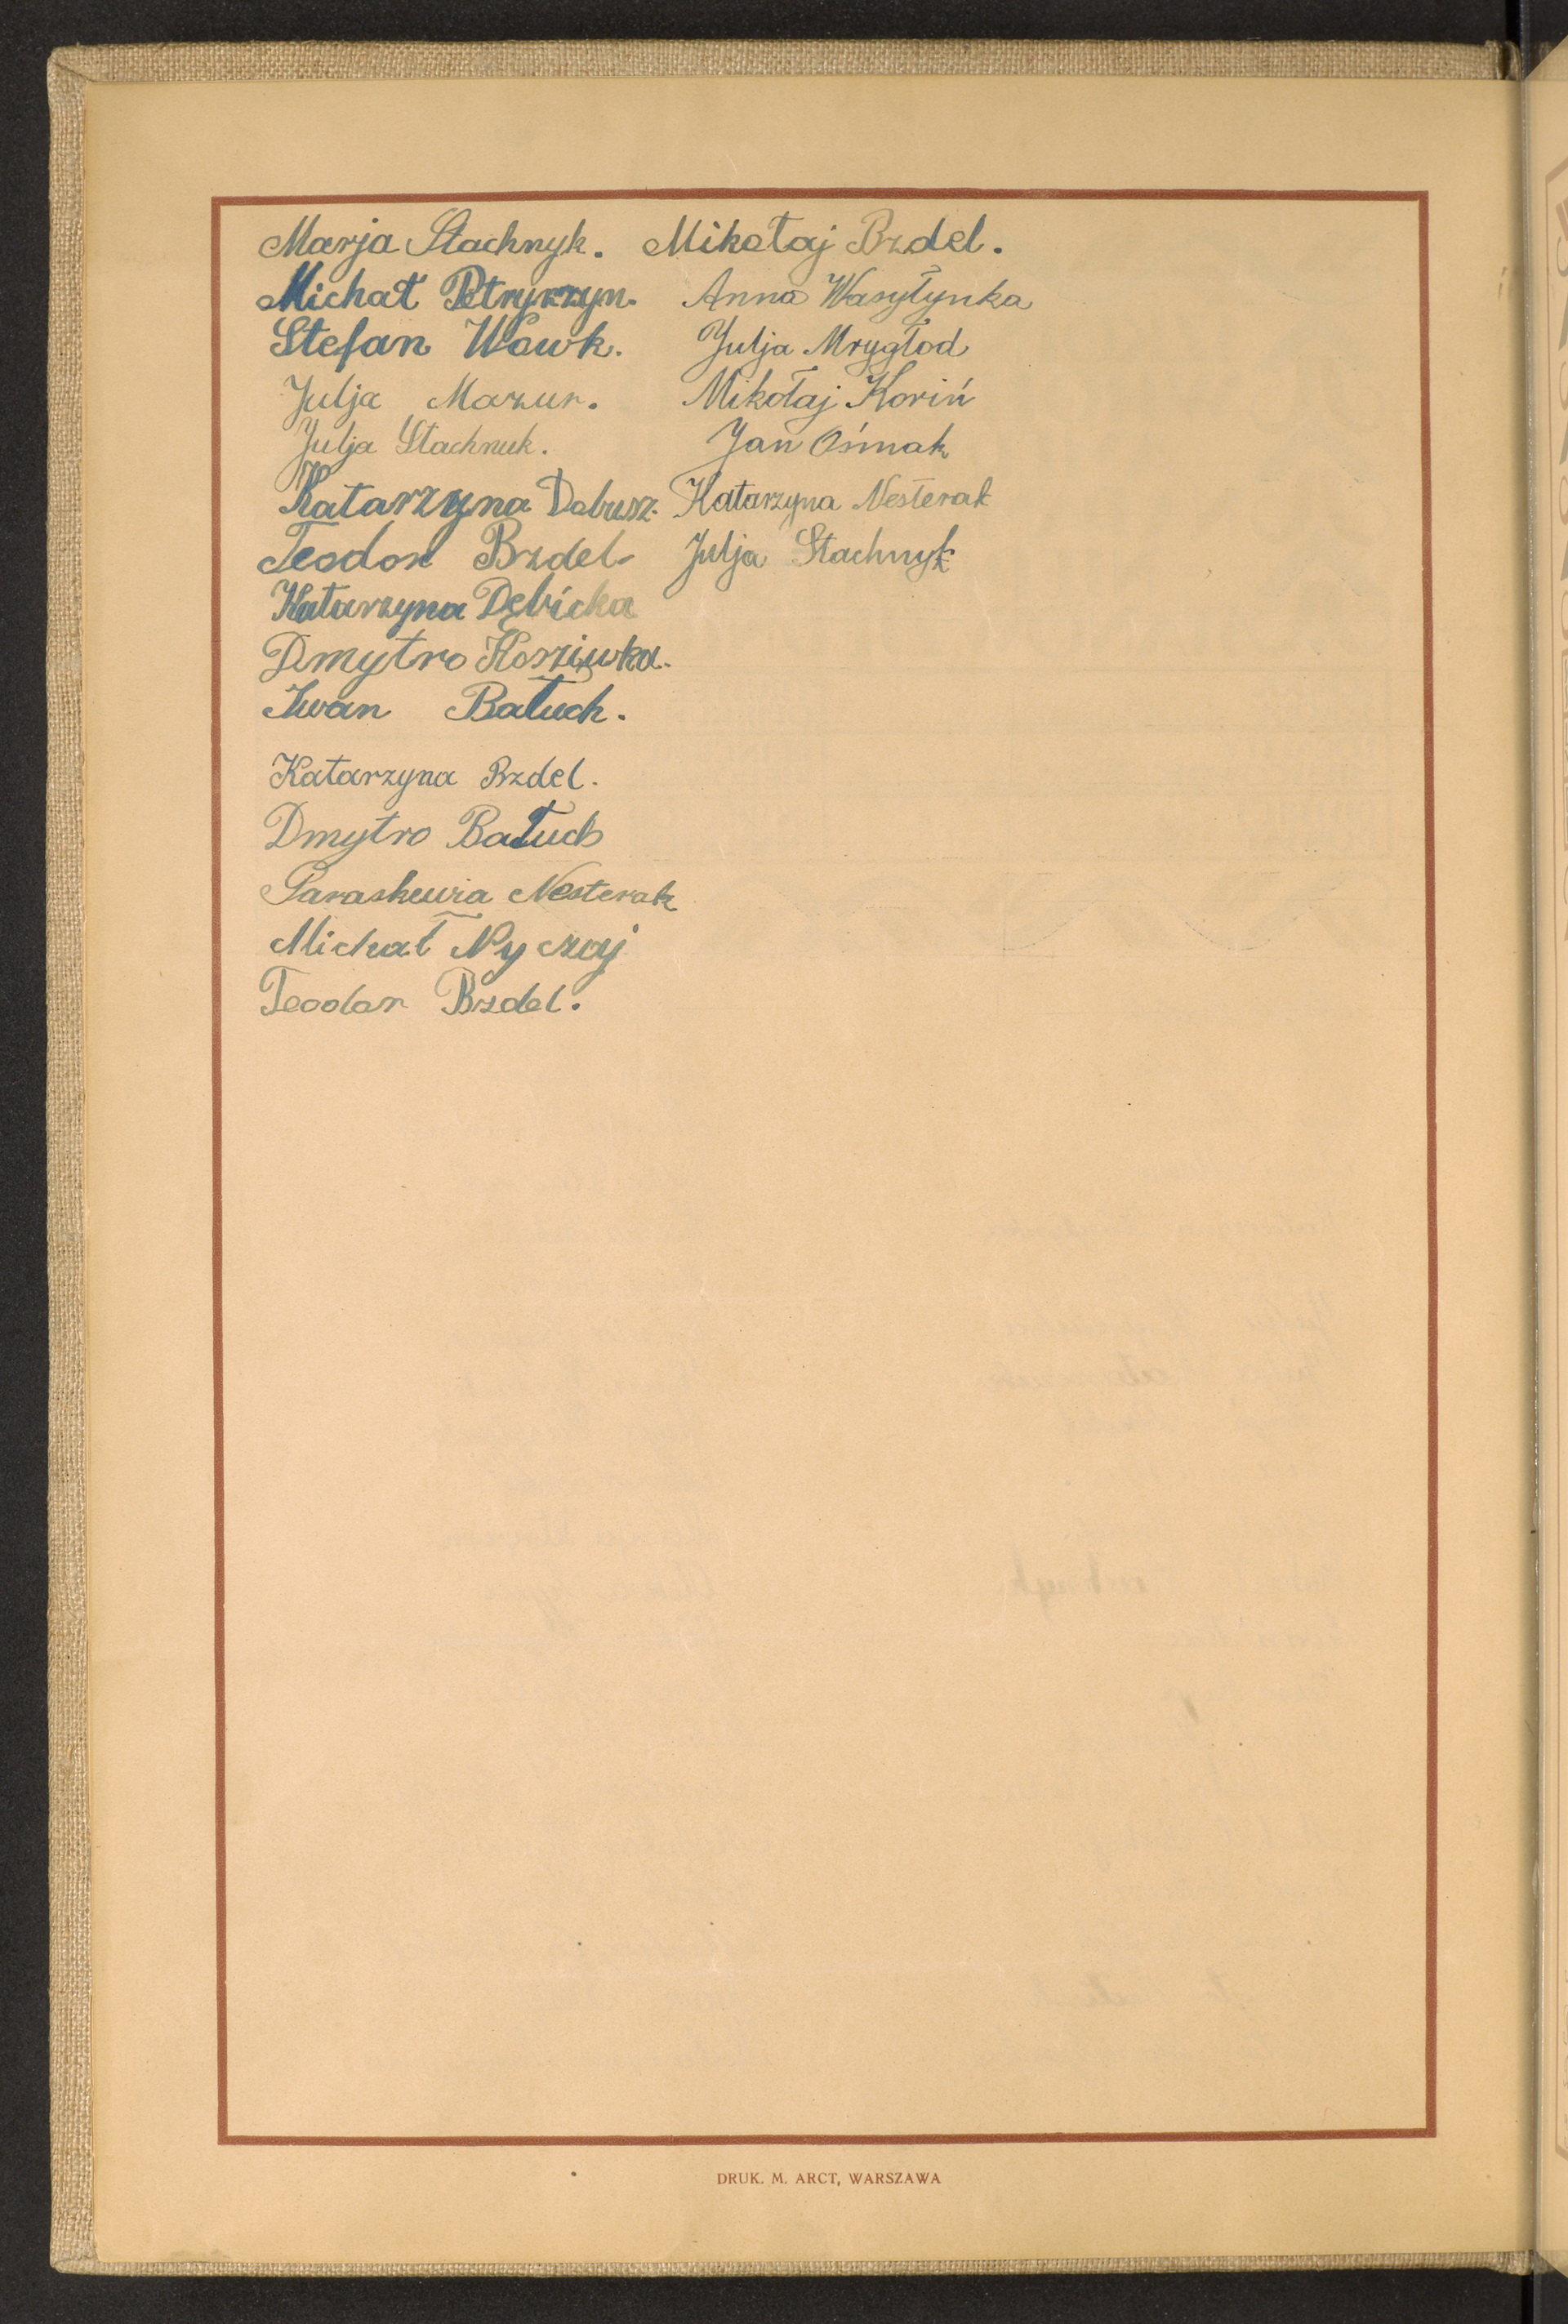 Marja Stachnyk. Mikołaj Bzdel.
Michał Petryszyn. Anna Wasyłynka
Stefan Wowk. Julja Mrygłod
Julja Mazur. Mikołaj Koriń
Julja Stachnuk. Jan Ośmak
Katarzyna Dobusz. Katarzyna Nesterak
Teodor Bzdel Julja Stachnyk
Katarzyna Dębicka
Dmytro Kosziwka.
Iwan Bałuch.
Katarzyna Bzdel.
Dmytro Bałuch
Paraskewia Nesterak
Michał Nyczaj
Teodor Bzdel.
DRUK. M. ARCT, WARSZAWA